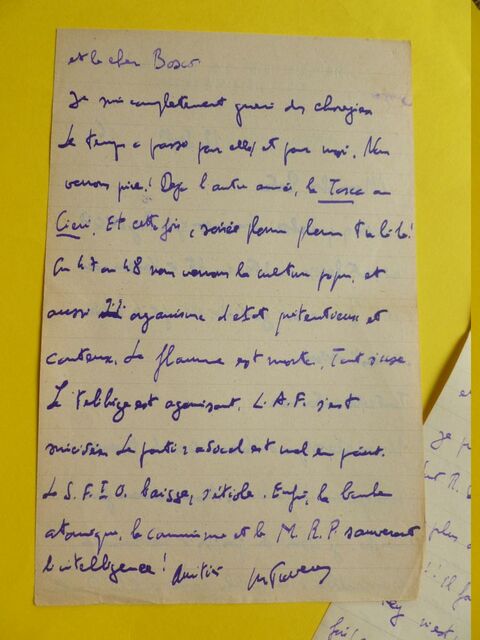 et le cher Bosco
Je suis complètement guéri des chorégies
Le temps a passé par elles et par moi. Nous
verrons pire! Déjà l'autre année, la Tosca au
Ciéri. Et cette fois, soirée flonflons
En 47 ou 48 nous verrons la culture popu. et
aussi organisme d'état prétentieux et
couteux. La flamme est morte. Tout s'use
Le Felibrige est agonisant. L'A.F. s'est
suicidée. Le parti radical est mal en point.
La S.F.I.O. baisse, s'étiole. Enfin, la bombe
atomique, le communisme et le M.R.P. sauveront
l'intelligence! Amitiés